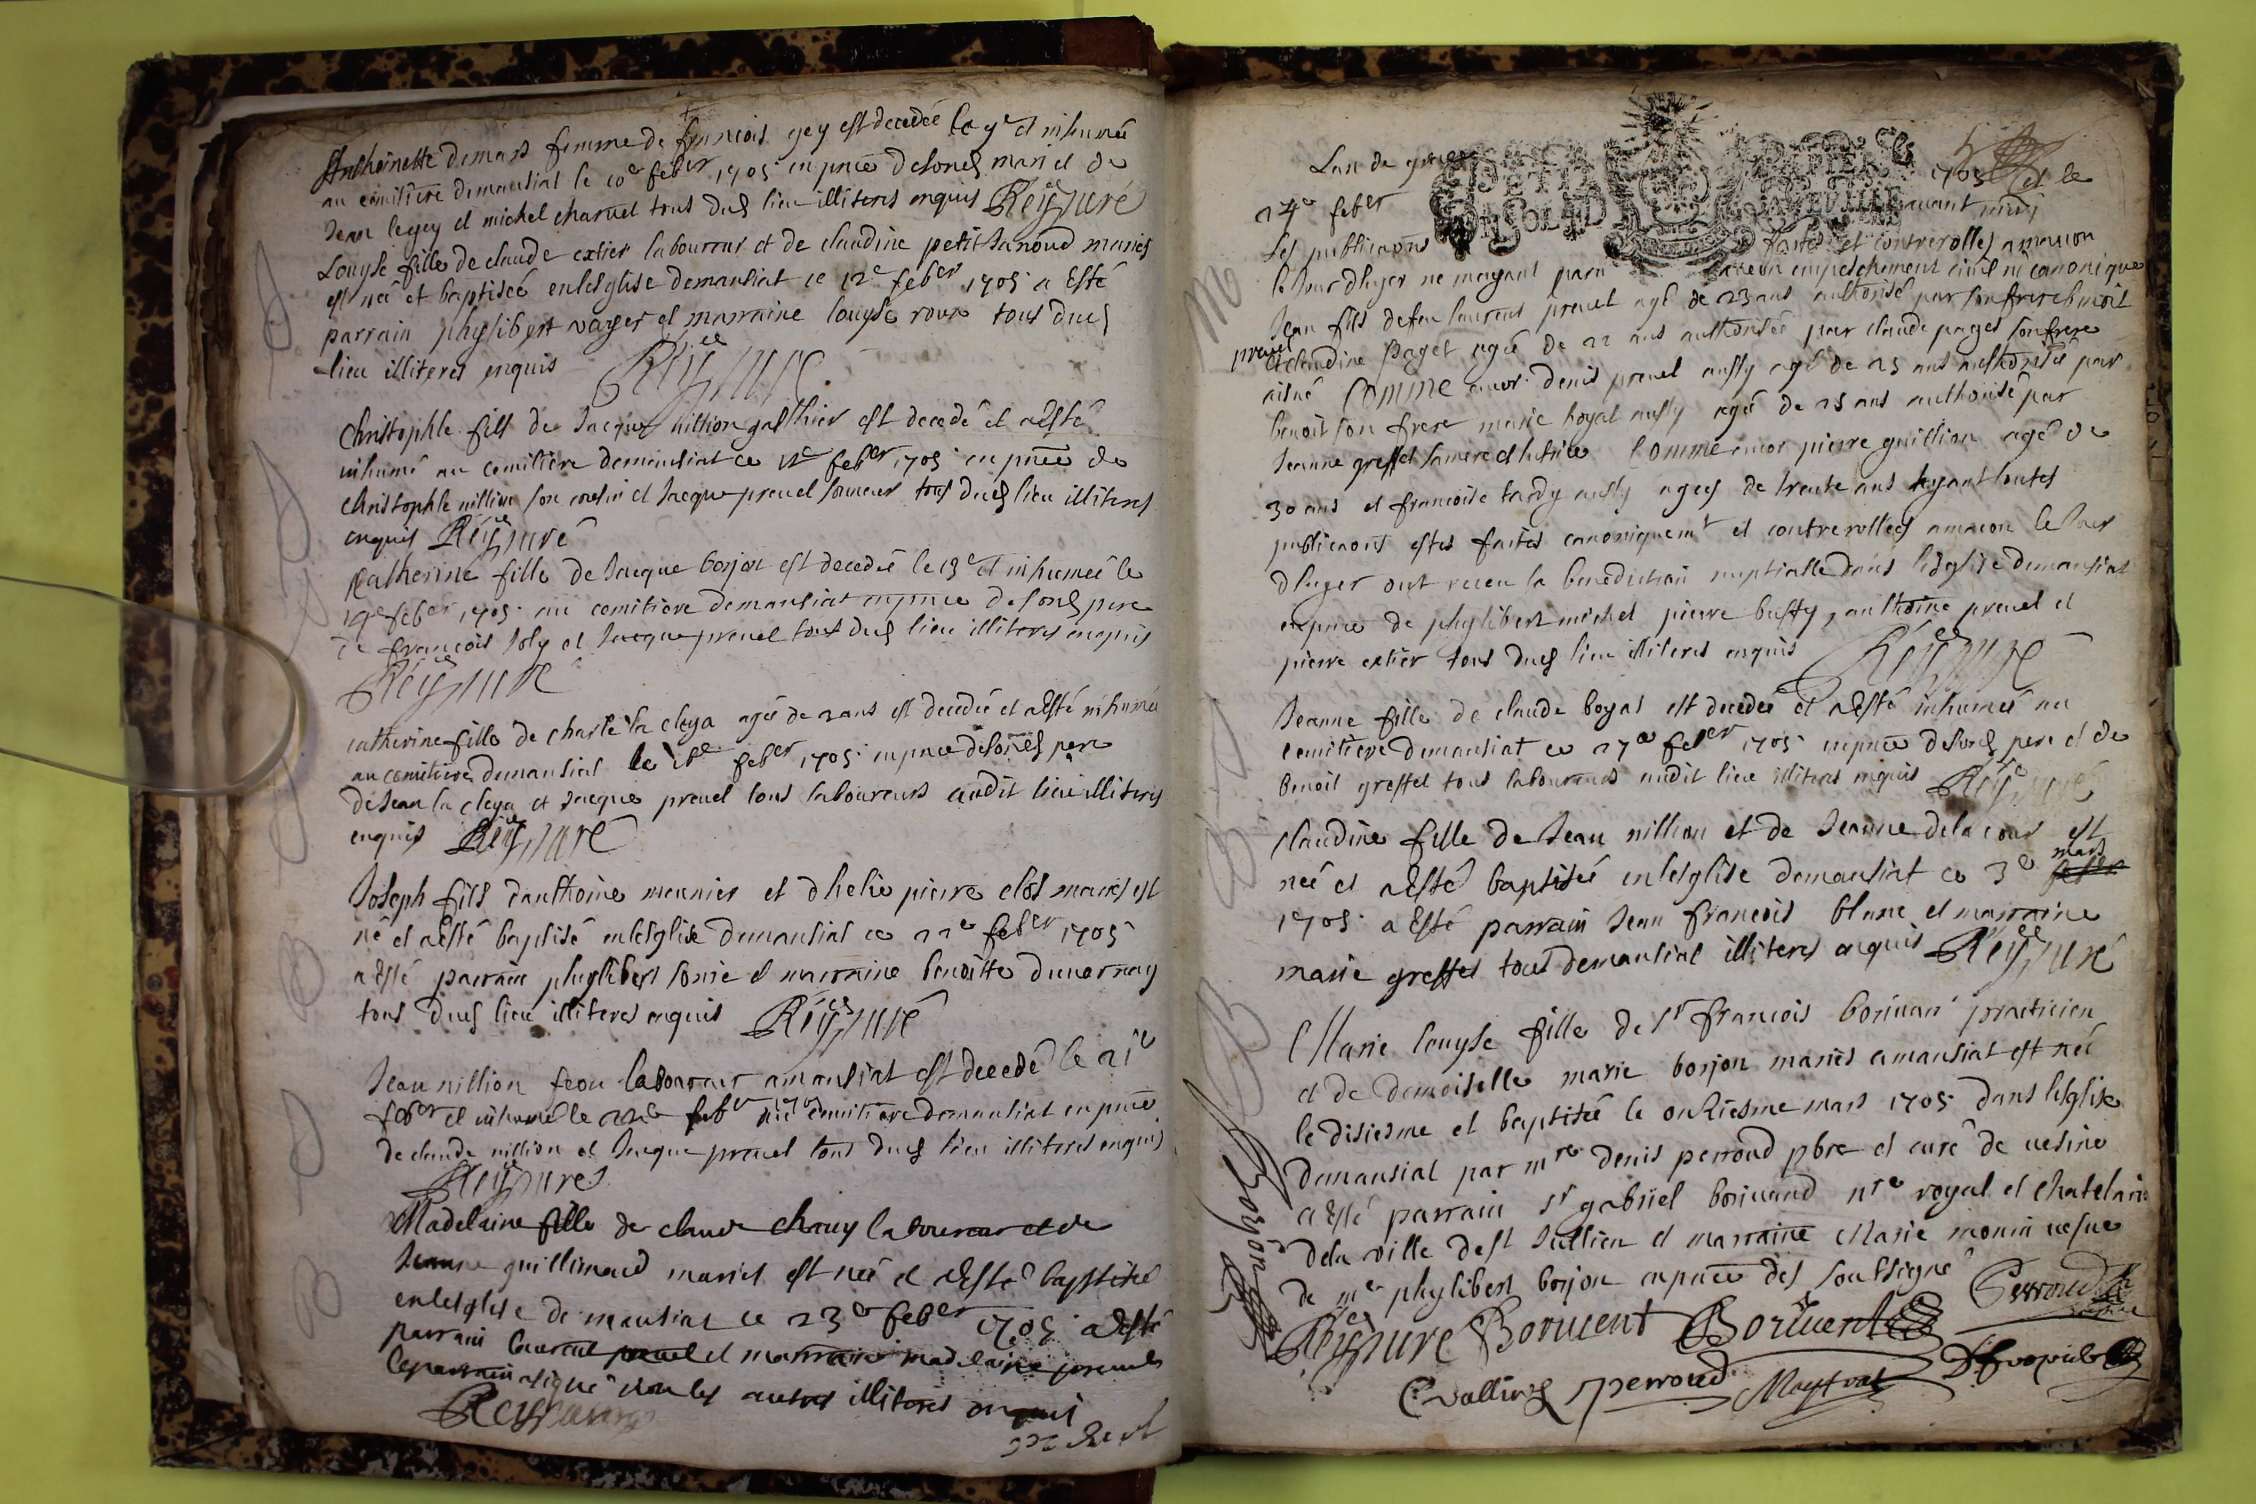 Anthoinette demars femme de francois gey est decedée le 9e et inhumée
au cemitiere demantiat le 10e feber 1705 en pnce de sond mari et de
Jean legey et michel charvet tous dud lieu illiteres enquis Reyssuré
Louyse fille de claude extier laboureur et de claudine petit Janoud mariés
est née et baptisée enlesglise demantiat ce 12e feber 1705 a Esté
parrain phylibert vager et marraine louyse roux tous dud
lieu illiteres enquis
christophle fils de Jacque nillion est decedé et aesté
inhumé au cemitiere demantiat ce feber 1705 en pnce de
christophle nillion son cousin et Jacque prevel sonneur tous dud lieu illiteres
enquis
Catherine fille de Jacque borjon est decedée le 13e et inhumée le
feber 1705 au cemitiere demantiat enpnce de sond pere
de francois Joly et Jacque prevel tous dud lieu illiteres enquis
catherine fille de charle la cleya agée de 2 ans est decedée et aesté inhumée
au cemitiere demantiat le feber 1705 en pnce desond pere
de Jean la cleya et Jacque prevel tous laboureurs audit lieu illiteres
enquis
Joseph fils danthoine meunier et dhelie pierre clos mariés est
né et aesté baptisé enlesglise demantiat ce 22e feber 1705
a Esté parrain phylibert sorie et marraine benoitte duvernay
tous dud lieu illiteres enquis
Jean nillion feou laboureur amantiat est decedé le 21e
feber et inhumé le 22e feber 1705 au cemitiere demantiat en pnce
de claude nillion et Jacque prevel tous dud lieu illiteres enquis
Madelaine fille de claude chouy laboureur et de
Jeanne guillimaud mariés est née et aesté baptisée
enlesglise de mantiat ce 23e feber 1705 a esté
parrain laurent prevel et marraine madelaine prevel
leparrain a signé non les autres illiteres enquis
Lan de grace 1705 et le
24e feber avant midy
Les publicaons faites et contrerollés amascon
le Jour dhyer ne mayant paru aucun empeschement civil ni canonique
Jean fils defeu laurent prevel agé de 23 ans authorisé par son frere benoit
prevel et claudine paget agée de 22 ans authorisée par claude paget son frere
aisné Comme encor denis prevel aussy agé de 25 ans authorisé par
benoit son frere marie boyat aussy agée de 25 ans authorisé par
Jeanne greffet samere et tutrice Comme encor pierre guillion agé de
30 ans et francoise tardy aussy agées de trente ans toutes
publicaons estés faites canoniquemt et contrerollées amacon le Jour
dhyer ont receu la benediction nuptialle dans lesglise demantiat
enpnce de phylibert michel pierre buffy, anthoine prevel et
pierre extier tous dud lieu illiteres enquis
Jeanne fille de claude boyat est decedée et aesté inhumée au
cemitiere demantiat ce 27e feber 1705 enpnce desond pere et de
benoit greffet tous laboureurs audit lieu illiteres enquis
claudine fille de Jean nillion et de Jeanne dela cour est
née et aesté baptisée enlesglise demantiat ce 3e mars
1705 a Esté parrain Jean francois blanc et marraine
marie greffet tous demantiat illiteres enquis
Marie louyse fille de sr francois borivan practicien
et de demoiselle marie borjon mariés amantiat est née
le disiesme et baptisée le onziesme mars 1705 dans lesglise
demantiat par mre denis perroud pbre et curé de vesine
a esté parrain sr gabriel borivand nre royal et chatelain
dela ville dest Jullien et marraine Marie monin vesve
de me phylibert borjon enpnce des soubsigné
Borjon
Reyssuré Borivent Borivent Perroud
perroud